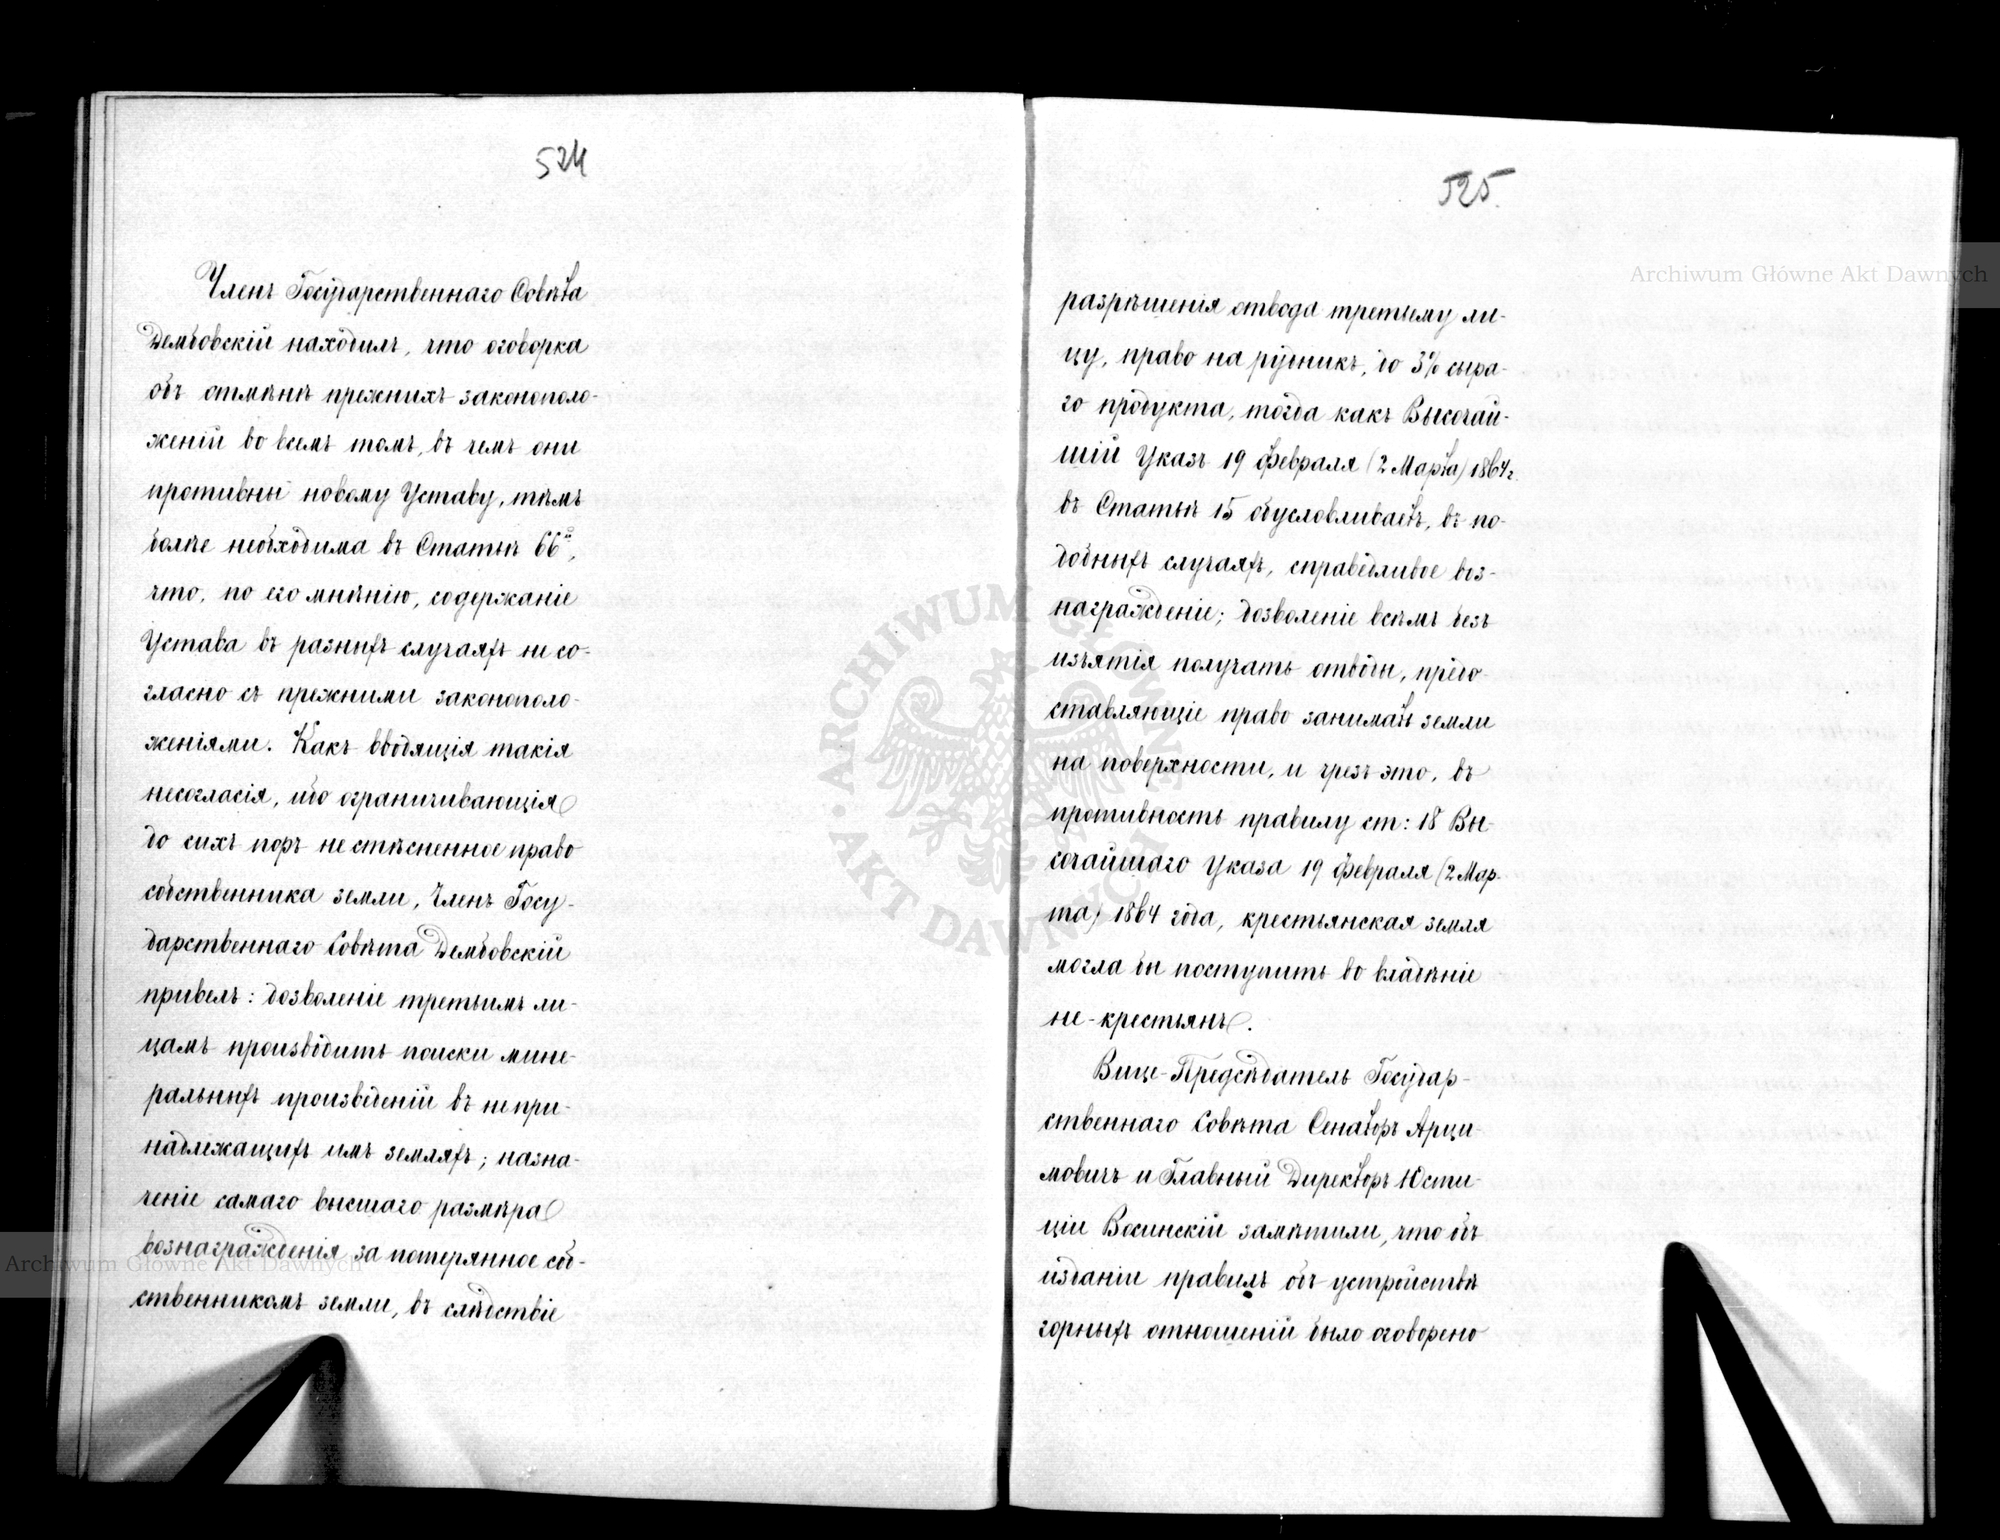 524
Членъ Государственнаго Совѣта
Дембовскій находилъ, что оговорка
объ отмѣнѣ прежнихъ законополо-
женій во всемъ томъ, въ чемъ они
противны новому Уставу, тѣмъ
болѣе необходима въ Статьѣ 66й,
что, по его мнѣнію, содержаніе
Устава въ разныхъ случаяхъ не со-
гласно съ прежними законополо-
женіями. Какъ вводящія такія
несогласія, ибо ограничивающія
до сихъ поръ не стѣсненное право
собственника земли, Членъ Госу-
дарственнаго Совѣта Дембовскій
привелъ: дозволеніе третьимъ ли-
цамъ производить поиски мине-
ральныхъ произведеній въ непри-
надлежащихъ имъ земляхъ; назна-
ченіе самаго высшаго размѣра
вознагражденія за потерянное соб-
ственникомъ земли, въ слѣдствіе
525.
разрѣшенія отвода третьему ли-
цу, право на рудникъ, до 3% сыра-
го продукта, тогда какъ Высочай-
шій Указъ 19 Февраля (2 Марта) 1864 г.
въ Статьѣ 15 обусловливаетъ, въ по-
добныхъ случаяхъ, справедливое воз-
награжденіе; дозволеніе всѣмъ безъ
изъятія получать отводы, предо-
ставляющіе право занимать земли
на поверхности, и чрезъ это, въ
противность правилу ст: 18 Вы-
сочайшаго Указа 19 Февраля (2 Мар-
та) 1864 года, крестьянская земля
могла бы поступить во владѣніе
не-крестьянъ.
Вице-Предсѣдатель Государ-
ственнаго Совѣта Сенаторъ Арци-
мовичъ и Главный Директоръ Юсти-
ціи Восинскій замѣтили, что объ
изданіи правилъ объ устройствѣ
горныхъ отношеній было оговорено
Archiwum Główne Akt Dawnych
Archiwum Główne Akt Dawnych
ARCHIWUM GŁÓWNE AKT DAWNYCH